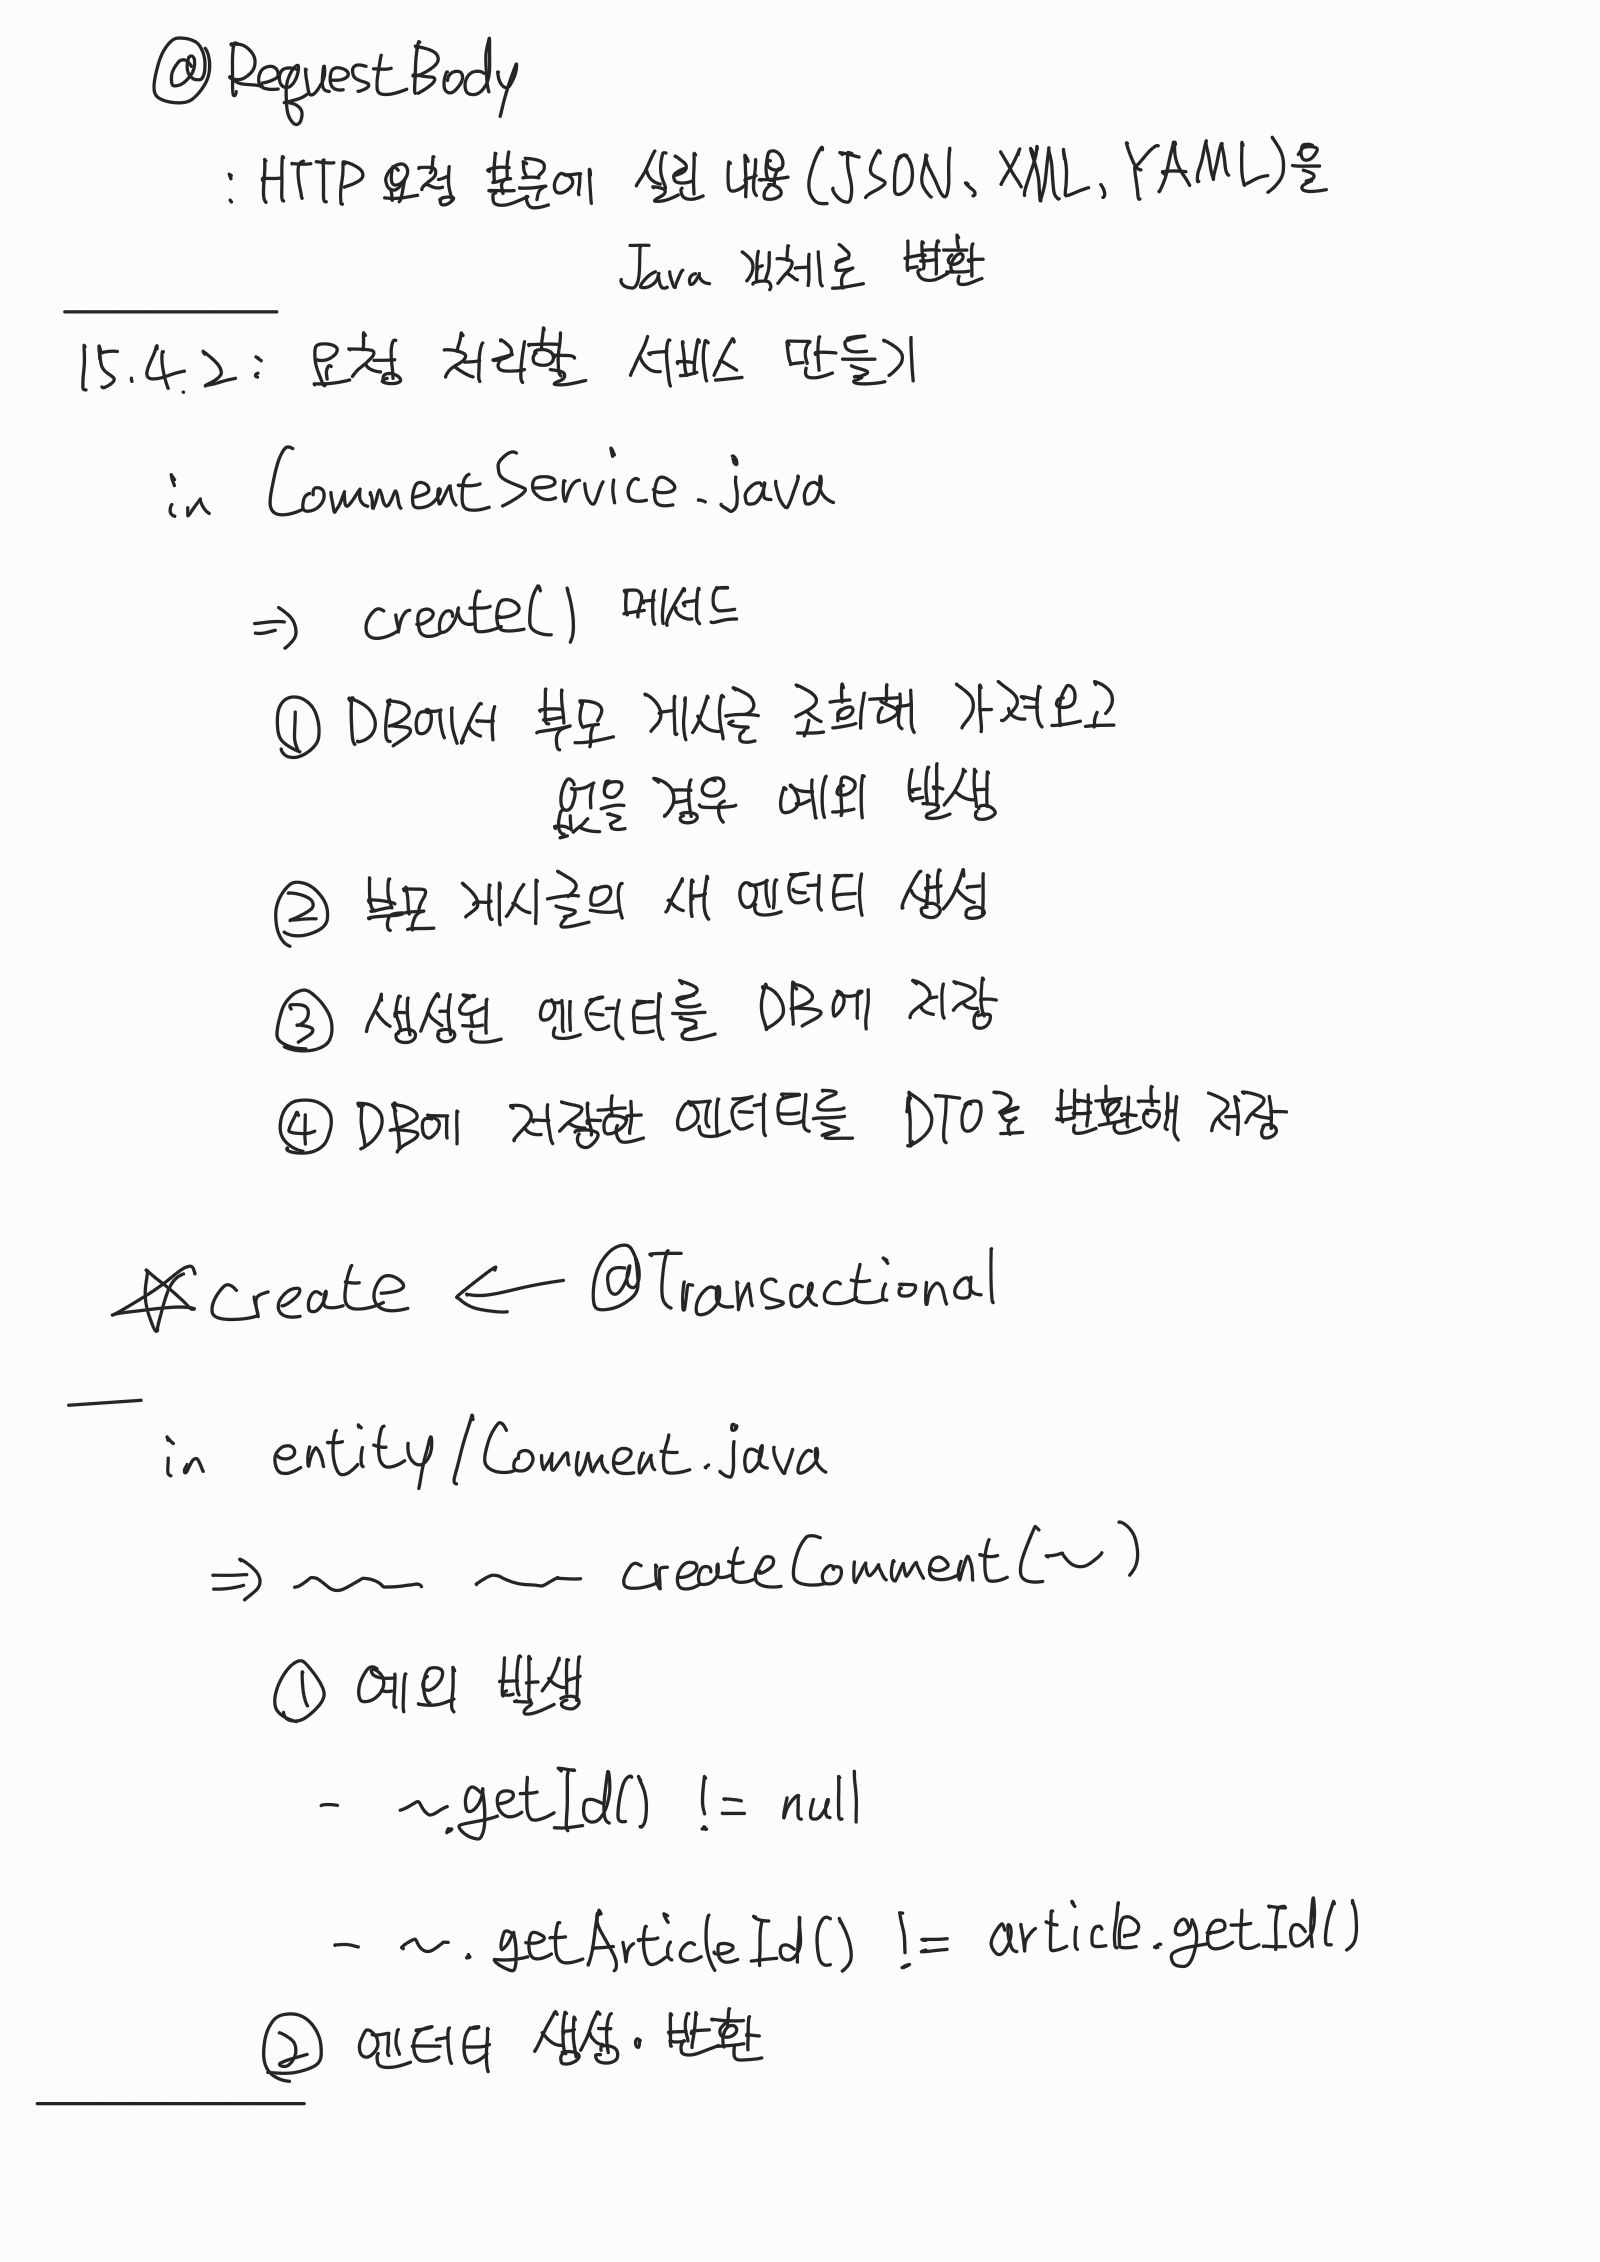 @RequestBody
: HTTP 요청 본문에 실린 내용 (JSON, XML, YAML)을
Java 객체로 변환
15.4.2 : 요청 처리할 서비스 만들기
in CommentService.java
⇒ create() 메서드
① DB에서 부모 게시글 조회해 가져오고
없을 경우 예외 발생
② 부모 게시글의 새 엔터티 생성
③ 생성된 엔터티를 DB에 저장
④ DB에 저장한 엔터티를 DTO로 변환해 저장
☆ create ← @Transactional
in entity/Comment.java
⇒ ~ ~ createComment(~)
① 예외 발생
- ~.getId() != null
- ~.getArticleId() != article.getId()
② 엔터티 생성·반환